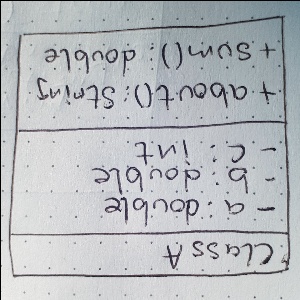 Class A
- a: double
- b: double
- c: int
+ about(): String
+ sum(): double